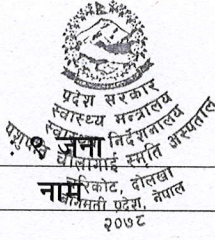 प्रदेश सरकार
स्वास्थ्य मन्त्रालय
स्वास्थ्य निर्देशनालय
पशुपति चौलागाई स्मृति अस्पताल
चरिकोट, दोलखा
बागमती प्रदेश, नेपाल
२०७८
जना
नाम